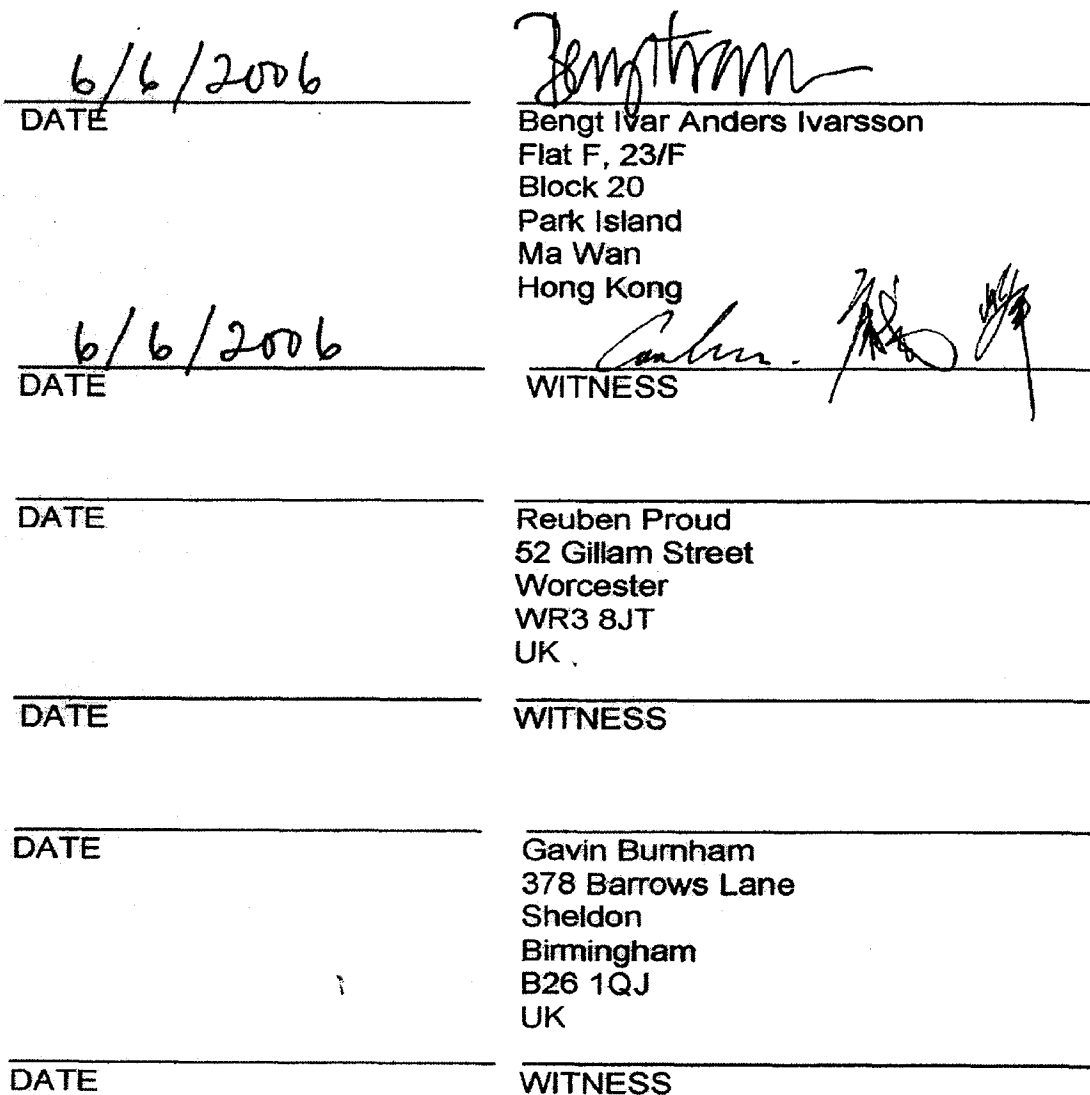 6/6/2006
DATE
Bengt Ivar Anders Ivarsson
Flat F, 23/F
Block 20
Park Island
Ma Wan
Hong Kong
6/6/2006
DATE
WITNESS
DATE
Reuben Proud
52 Gillam Street
Worcester
WR3 8JT
UK
DATE
WITNESS
DATE
Gavin Burnham
378 Barrows Lane
Sheldon
Birmingham
B26 1QJ
UK
DATE
WITNESS